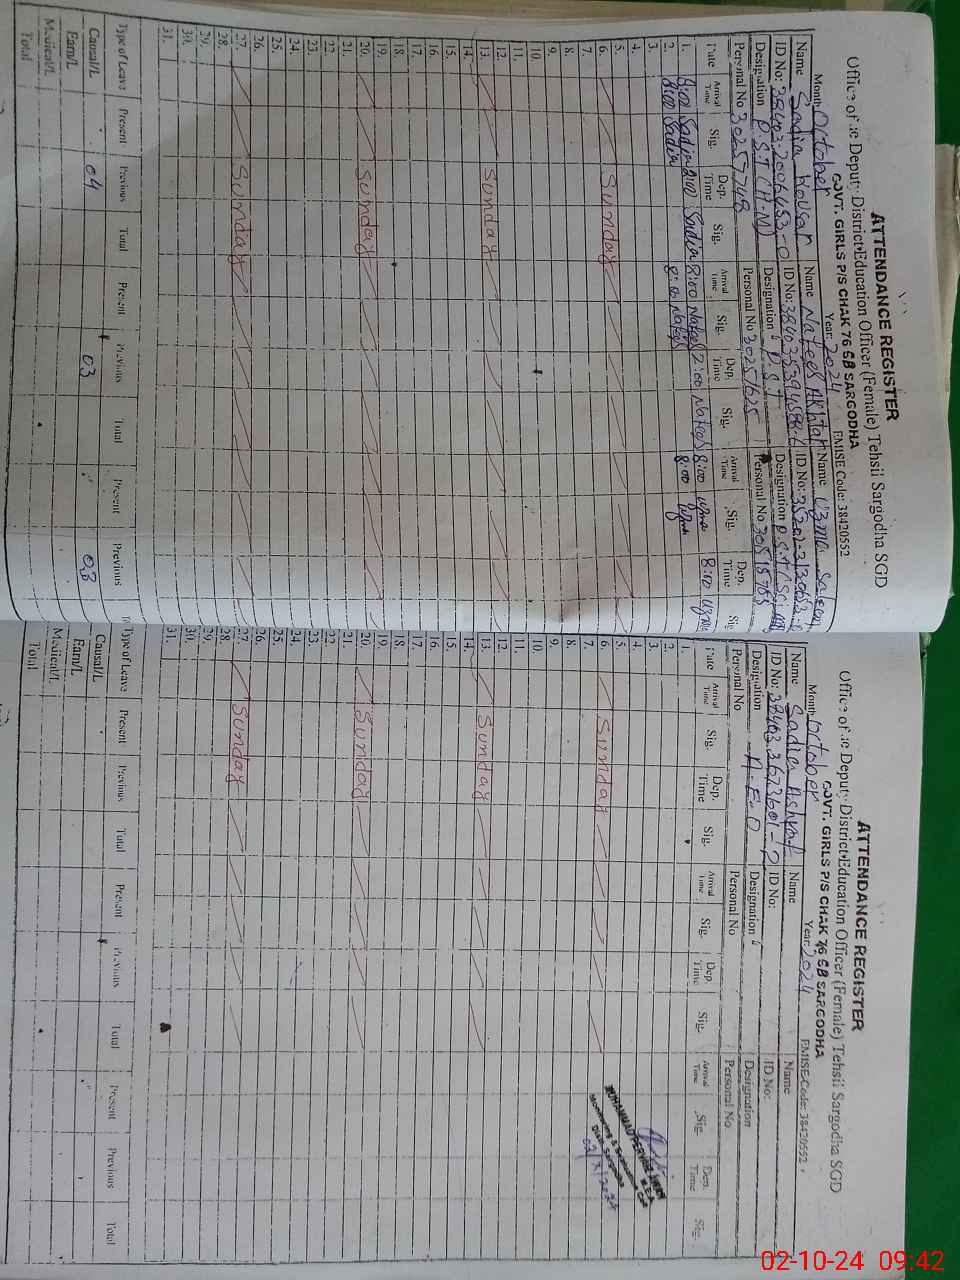 ATTENDANCE REGISTER
Office of Deputy District Education Officer (Female) Tehsil Sargodha SGD
GOVT. GIRLS P/S CHAK 76 SB SARGODHA
Month October Year: 2024 EMISE Code: 38420552
Name Sadia Kousar Name Nateeq Akhtar Name Uzma Saleem
ID No: ID No: ID No:
Designation P.S.T (H.M) Designation P.S.T Designation
Personal No 30257748 Personal No 30251625 Personal No
Date Arrival Time Sig. Dep. Time Sig. Arrival Time Sig. Dep. Time Sig. Arrival Time Sig. Dep. Time Sig
1. 8:00 Sadia 2:00 Sadia 8:00 Nateeq 2:00 Nateeq 8:00 Uzma 8:00 Uzma
2. 8:00 Sadia 8:00 Nateeq 8:00 Uzma
3.
4.
5.
6. Sunday
7.
8.
9.
10.
11.
12.
13. Sunday
14.
15.
16.
17.
18.
19.
20. Sunday
21.
22.
23.
24.
25.
26.
27. Sunday
28.
29.
30.
31.
Type of Leave Present Previous Total Present Previous Total Present Previous
Causal/L 04 03 03
Earn/L
Medical/L
Total
ATTENDANCE REGISTER
Office of Deputy District Education Officer (Female) Tehsil Sargodha SGD
GOVT. GIRLS P/S CHAK 76 SB SARGODHA
Month October Year: 2024 EMISE Code: 38420552
Name Sadia Ashraf Name Name
ID No: ID No: ID No:
Designation A.E.O Designation Designation
Personal No Personal No Personal No
Date Arrival Time Sig. Dep. Time Sig. Arrival Time Sig. Dep. Time Sig. Arrival Time Sig. Dep. Time Sig.
1.
2.
3.
4.
5.
6. Sunday
7.
8.
9.
10.
11.
12.
13. Sunday
14.
15.
16.
17.
18.
19.
20. Sunday
21.
22.
23.
24.
25.
26.
27. Sunday
28.
29.
30.
31.
MUHAMMAD PERVAIZ
M.E.A
Monitoring & Cell
Distt. Sargodha
02/X/2024
Type of Leave Present Previous Total Present Previous Total Present Previous Total
Causal/L
Earn/L
Medical/L
Total
02-10-24 09:42